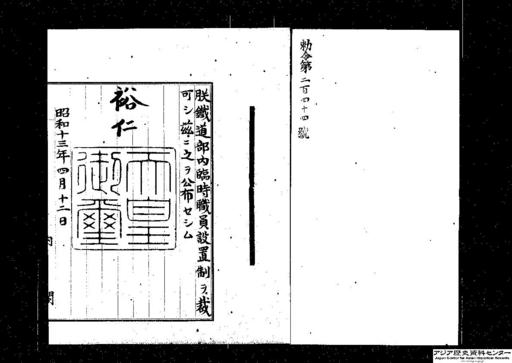 勅令第二百四十四號
朕鐵道部內臨時職員設置制ヲ裁
可シ茲ニ之ヲ公布セシム
裕仁
天皇御璽
昭和十三年四月十二日
アジア歴史資料センター
Japan Center for Asian Historical Records